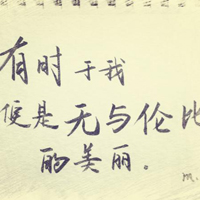 有时于我
便是无与伦比
的美丽。